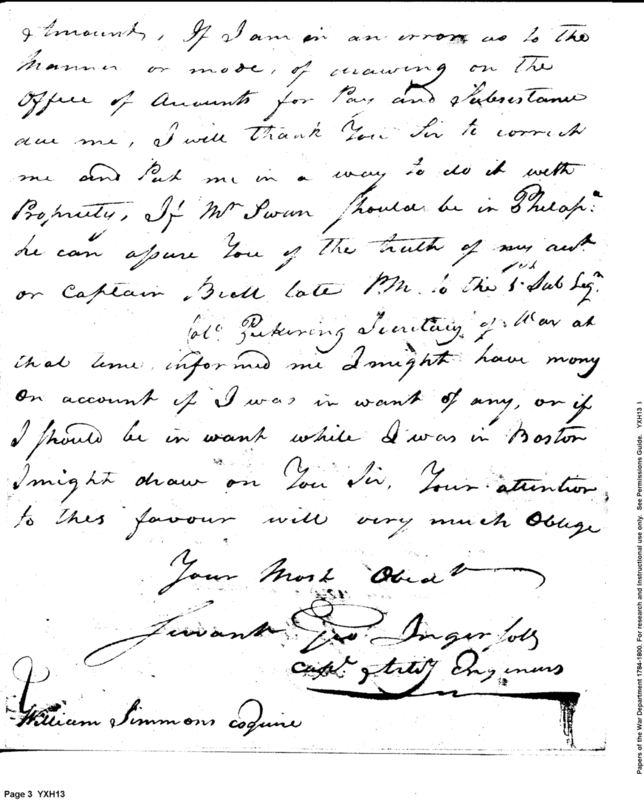 & Amount, If I am in an error as to the
manner or mode, of drawing on the
Office of Accounts for Pay and Subsistance
due me, I will thank You Sir to correct
me and Put me in a way to do it with
Propriety, If Mr Swan should be in Philapa.
he can assure You of the truth of my
or Captain late PM. to the 1st Sub Legn.
Colo. Pickering Secretary of War at
that time informed me I might have mony
on account if I was in want of any, or if
I should be in want while I was in Boston
I might draw on You Sir, Your attention
to this favour will very much Oblige
Your Most Obedt
Servant Geo Ingersoll
Capt. Engineers
William Simmons Esquire
Page 3 YXH13
Papers of the War Department 1784-1800. For research and instructional use only. See Permissions Guide. YXH13